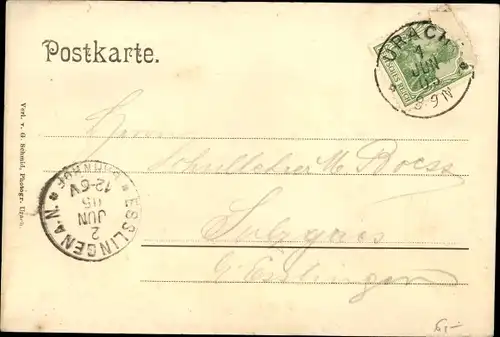 Postkarte.
URACH
1
JUN
05
8-9 N
DEUTSCHES REICH
Verl. v. G. Schmid, Photogr. Urach.
Herrn
Schullehrer
Sulzgries
Esslingen
ESSLINGEN A.N.
BAHNHOF
2
JUN
05
12-6 V